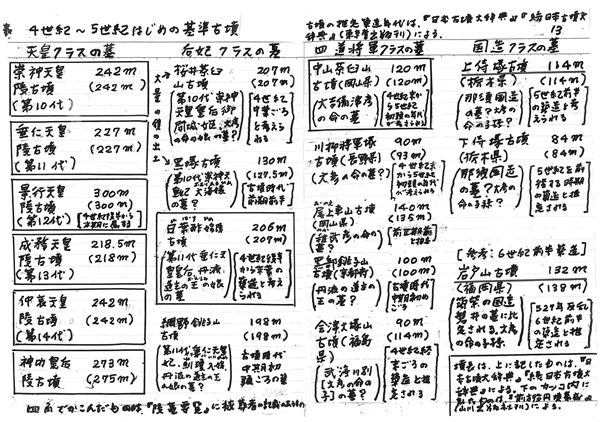 4世紀～5世紀はじめの基準古墳
天皇クラスの墓
崇神天皇 242m
陵古墳 (242m)
(第10代)
垂仁天皇 227m
陵古墳 (227m)
(第11代)
景行天皇 300m
陵古墳 (300m)
(第12代)
成務天皇 218.5m
陵古墳 (218m)
(第13代)
仲哀天皇 242m
陵古墳 (242m)
(第14代)
神功皇后 273m
陵古墳 (275m)
后妃クラスの墓
桜井茶臼 207m
山古墳 (207m)
第10代崇神
天皇皇后御
間城姫、大彦
の命の娘の墓?
4世紀
中葉ごろ
と考え
られる
黒塚古墳 130m
(127.5m)
古墳時代
前期前半
日葉酢媛 206m
古墳 (207m)
第11代垂仁天
皇皇后、丹波
道主の王の娘
の墓
4世紀後半
から末葉の
築造と考え
られる
網野銚子山 198m
古墳 (198m)
古墳時代
中期初
頭ごろの墓
古墳の推定築造年代は、『日本古墳大辞典』『続日本古墳大
辞典』(東京堂出版刊)による。
13
四道将軍クラスの墓
中山茶臼山 120m
古墳(岡山県) (120m)
大吉備津彦
の命の墓
川柳将軍塚 90m
古墳(長野県) (93m)
大彦の命の墓?
尾上車山古墳 140m
(岡山県) (135m)
稚武彦の命の
墓?
黒部銚子山 100m
古墳(京都府) (100m)
丹波の道主の
王の墓?
会津大塚山 90m
古墳(福島 (114m)
県)
武渟川別
[大彦の命の
子]の墓?
4世紀終
末ごろの
築造と推
定される
国造クラスの墓
上侍塚古墳 114m
(栃木県) (114m)
那須国造
の墓?大彦
の命の子孫?
5世紀前半
の築造と考
えられる
下侍塚古墳 84m
(栃木県) (84m)
那須国造
の墓?大彦
の命の子孫?
5世紀を前
後する時期
の築造と推
定される
[参考:6世紀前半築造]
岩戸山古墳 132m
(福岡県) (138m)
筑紫の国造
磐井の墓に比
定される。大彦
の命の子孫
527年反乱
6世紀前半
の築造と推
定される
墳長は、上に記したものは、『日
本古墳大辞典』『続日本古墳大
辞典』による。下のカッコ内に